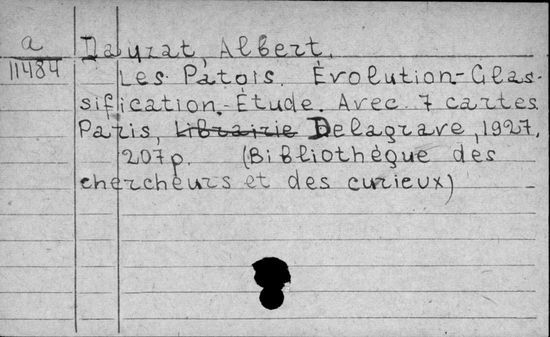 a
11484
Dauzat, Albert.
Les Patois. Évolution-Clas-
sification.-Étude. Avec 7 cartes
Paris, Librairie Delagrave, 1927,
207p. (Bibliothéque des
chercheurs et des curieux)